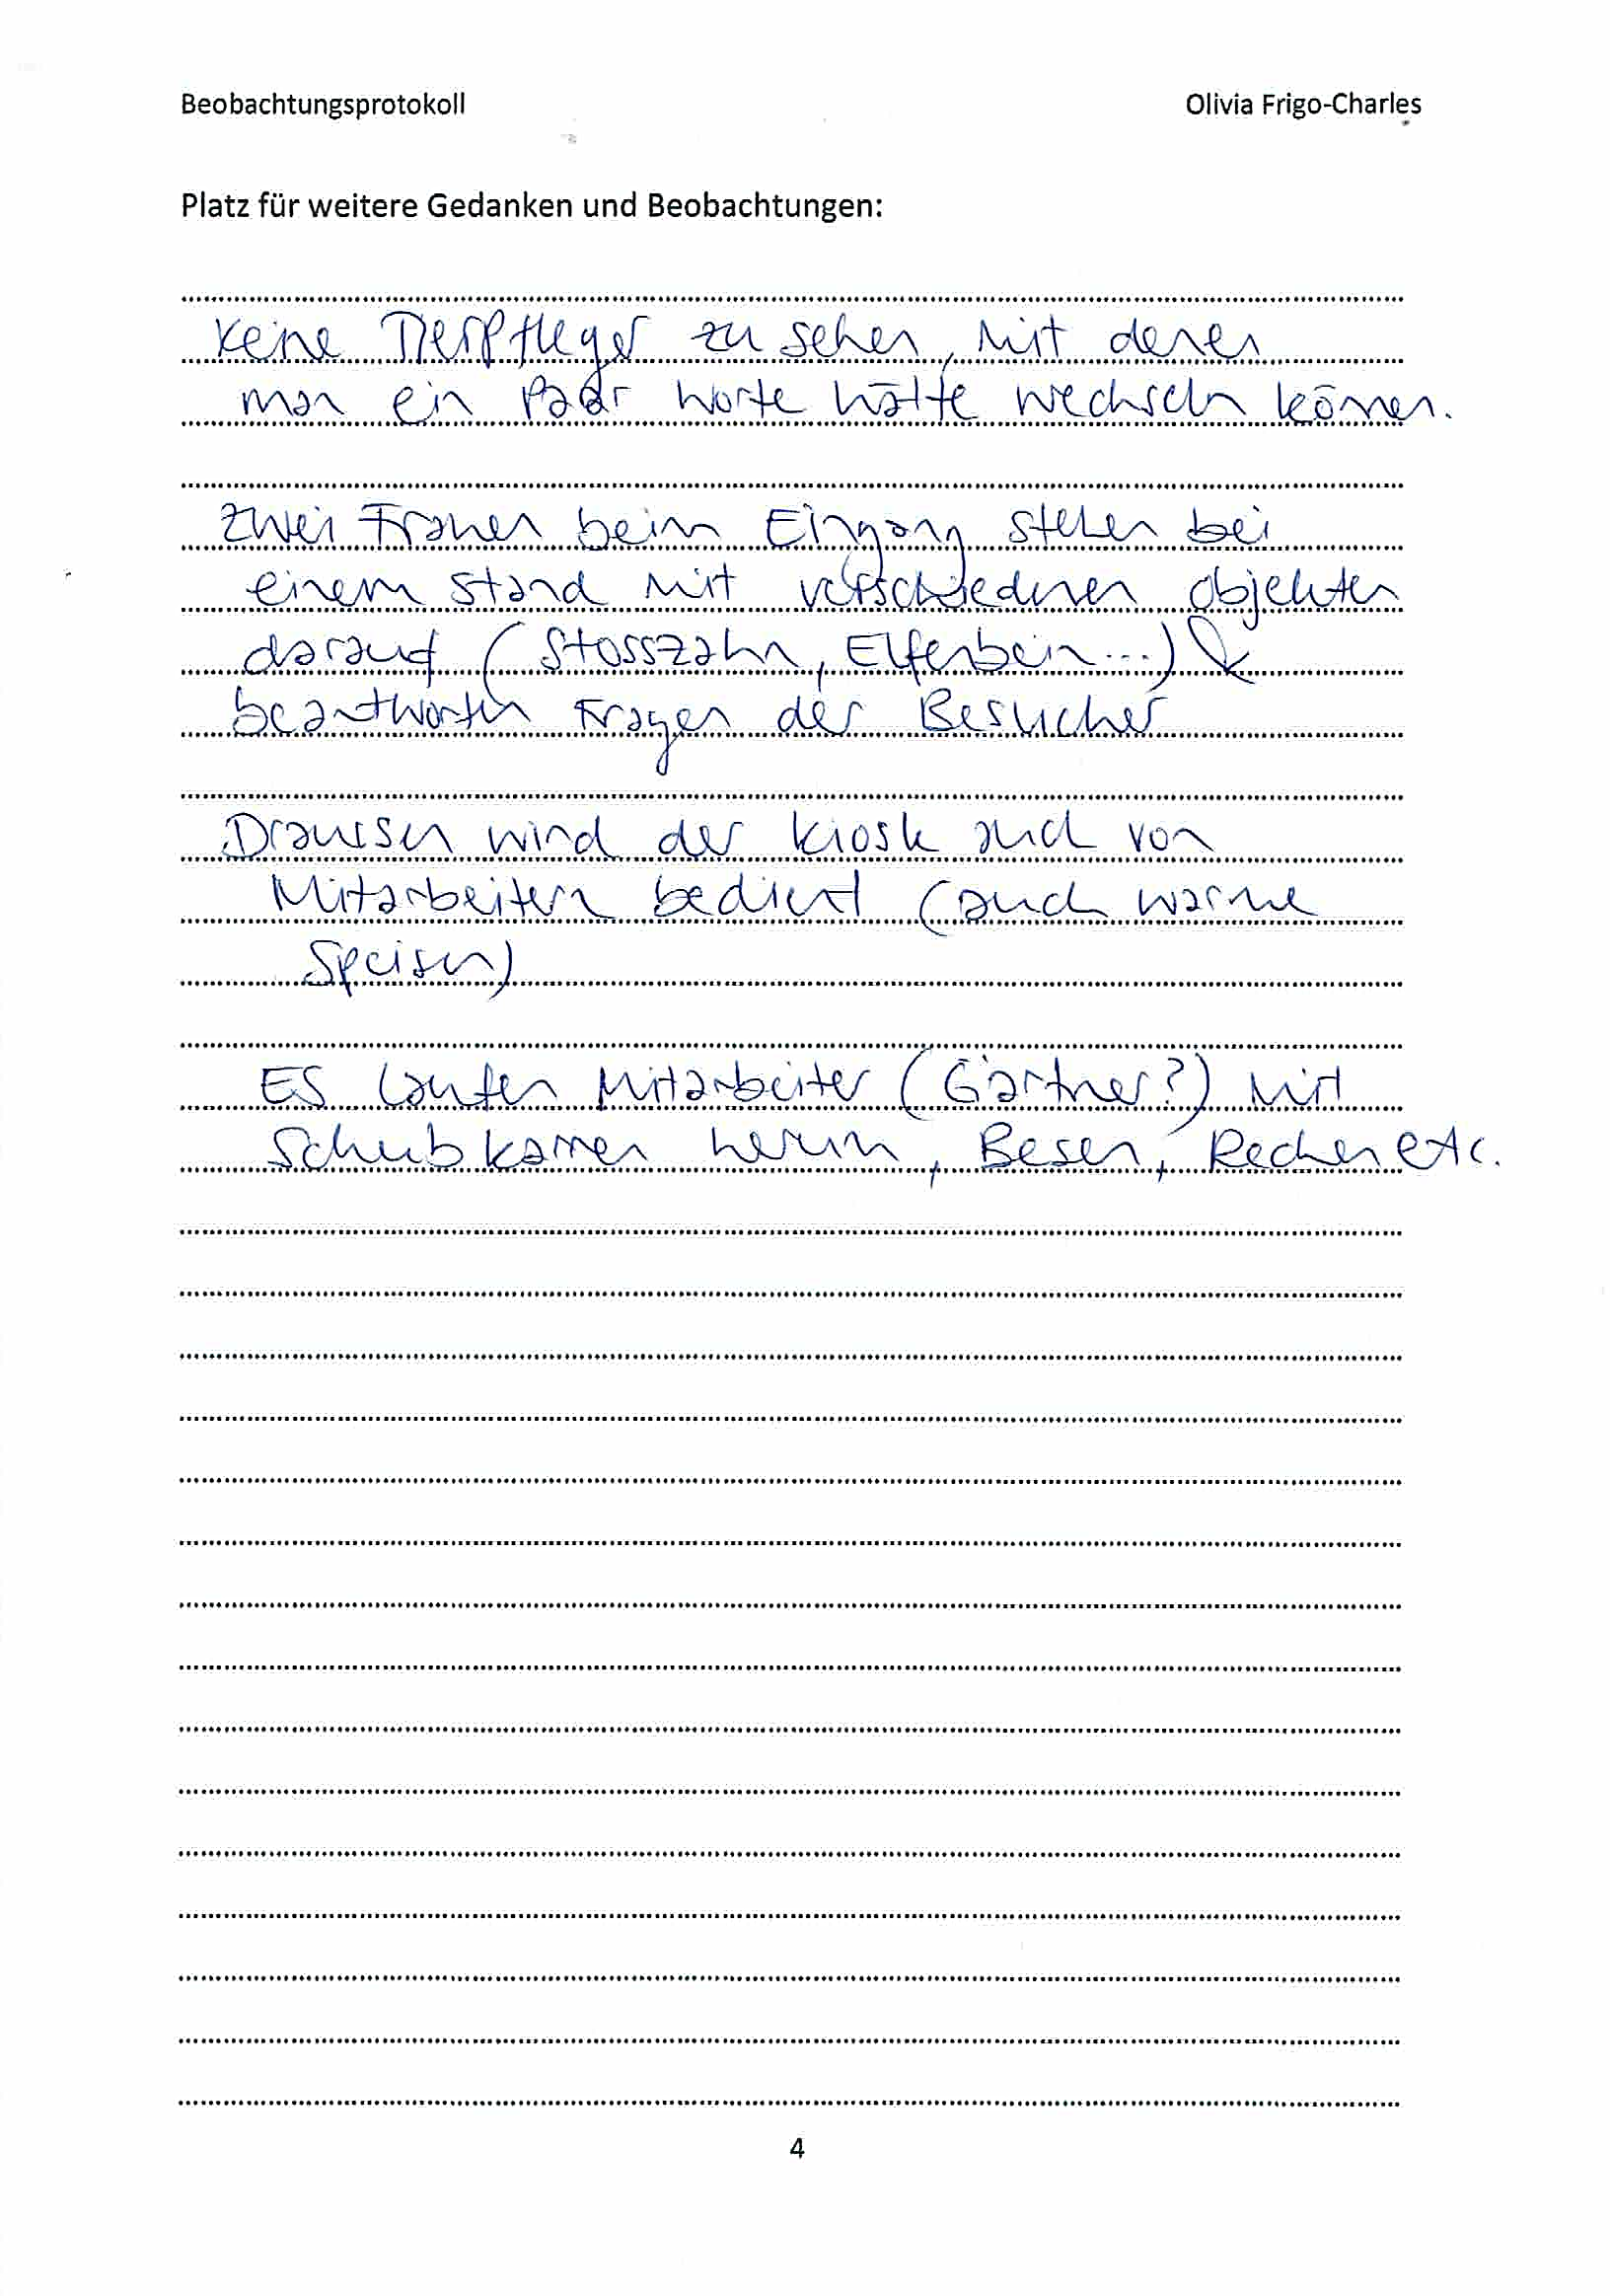 Beobachtungsprotokoll Olivia Frigo-Charles
Platz für weitere Gedanken und Beobachtungen:
Keine Tierpfleger zu sehen, mit denen
man ein paar Worte hätte wechseln können.
Zwei Frauen beim Eingang stehen bei
einem Stand mit verschiedenen Objekten
darauf (Stosszahn, Elfenbein...) &
beantworten Fragen der Besucher
Draussen wird der Kiosk auch von
Mitarbeitern bedient (auch warme
Speisen)
Es laufen Mitarbeiter (Gärtner?) mit
Schubkarren herum, Besen, Rechen etc.
4